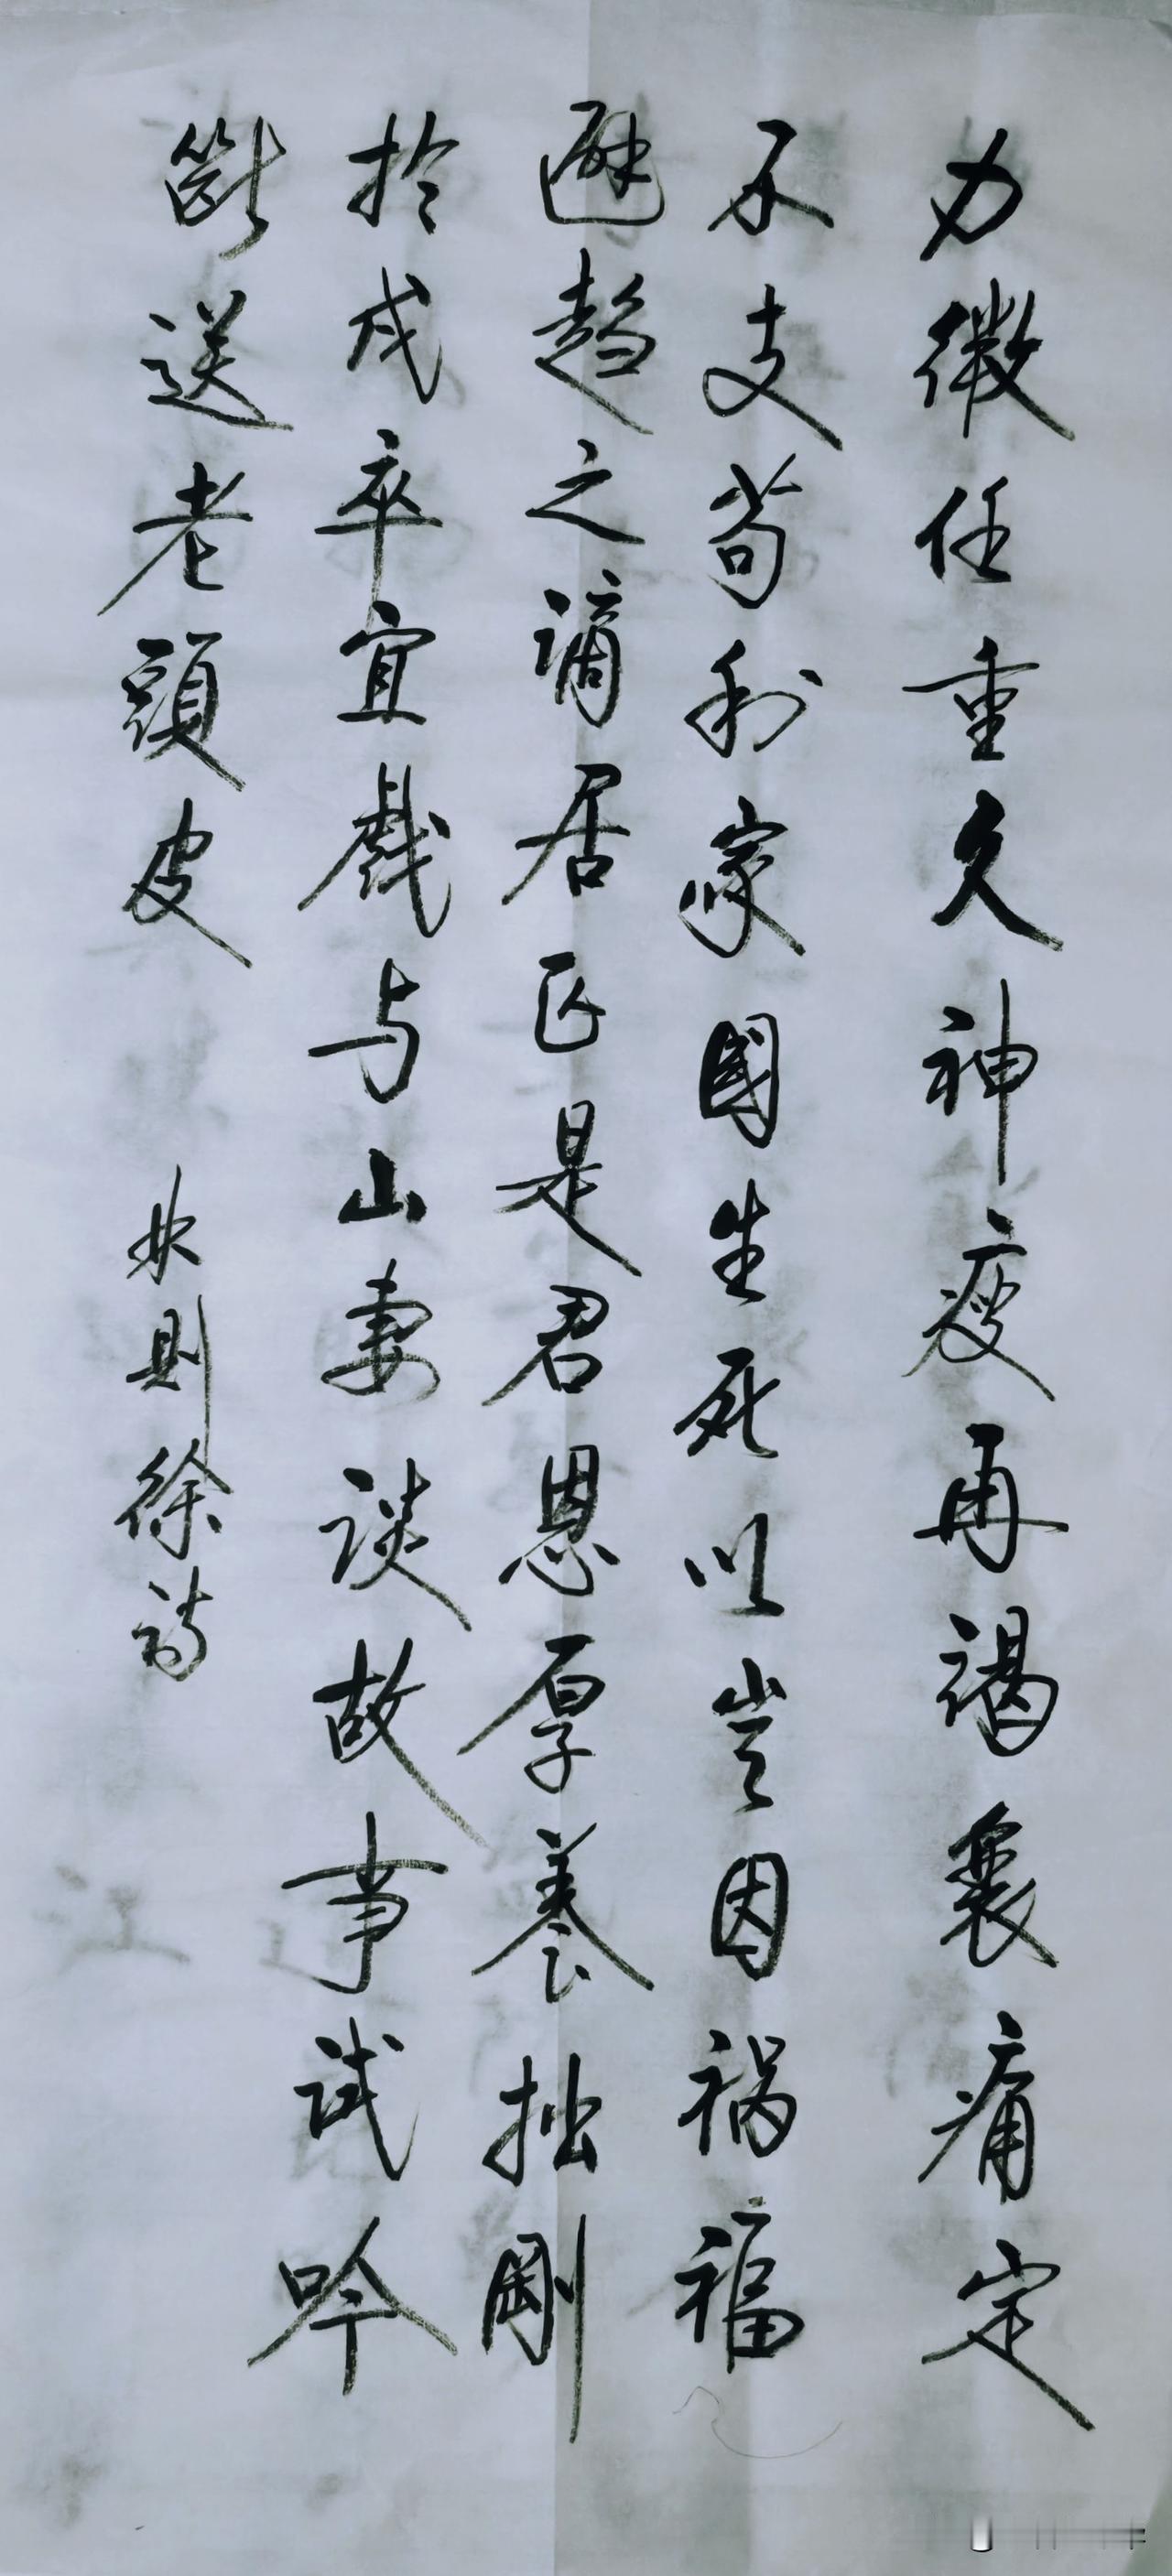 力微任重久神疲再竭衰庸定
不支苟利家國生死以豈因祸福
避趋之谪居正是君恩厚养拙剛
於戍卒宜戲与山妻谈故事试吟
斷送老頭皮
林则徐詩